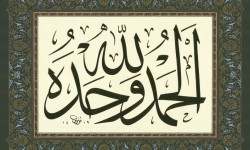 الحمد لله وحده